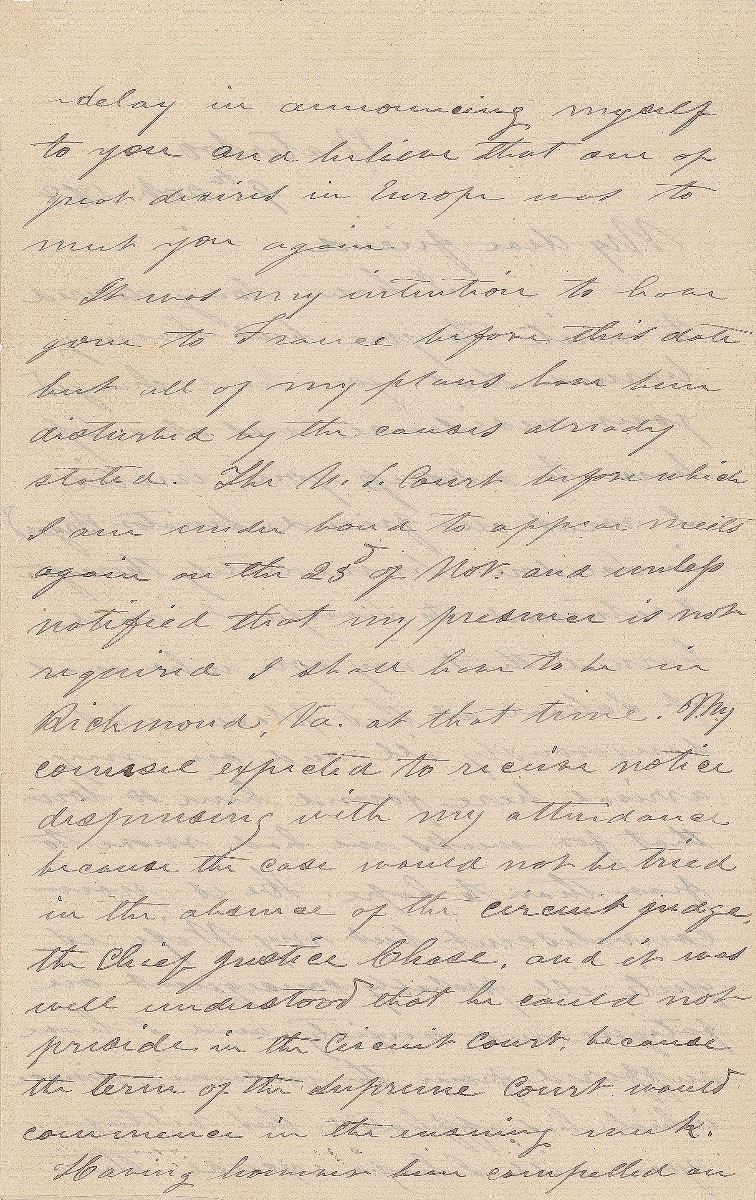 delay in announcing myself
to you and believe that one of
great desires in Europe was to
meet you again.
It was my intention to have
gone to France before this date
but all of my plans have been
disturbed by the causes already
stated. The U. S. Court before which
I am under bond to appear meets
again on the 23d of Nov: and unless
notified that my presence is not
required I shall have to be in
Richmond, Va. at that time. My
counsel expected to receive notice
dispensing with my attendance
because the case would not be tried
in the absence of the circuit judge,
the Chief Justice Chase, and it was
well understood that he could not
preside in the Circuit Court, because
the term of the Supreme Court would
commence in the ensuing week.
Having however been compelled on